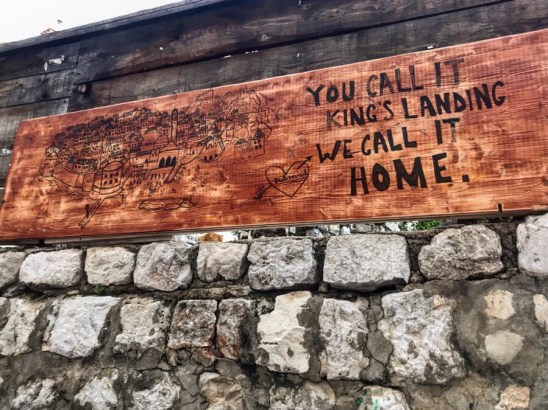 YOU CALL IT
KING'S LANDING
WE CALL IT
HOME.